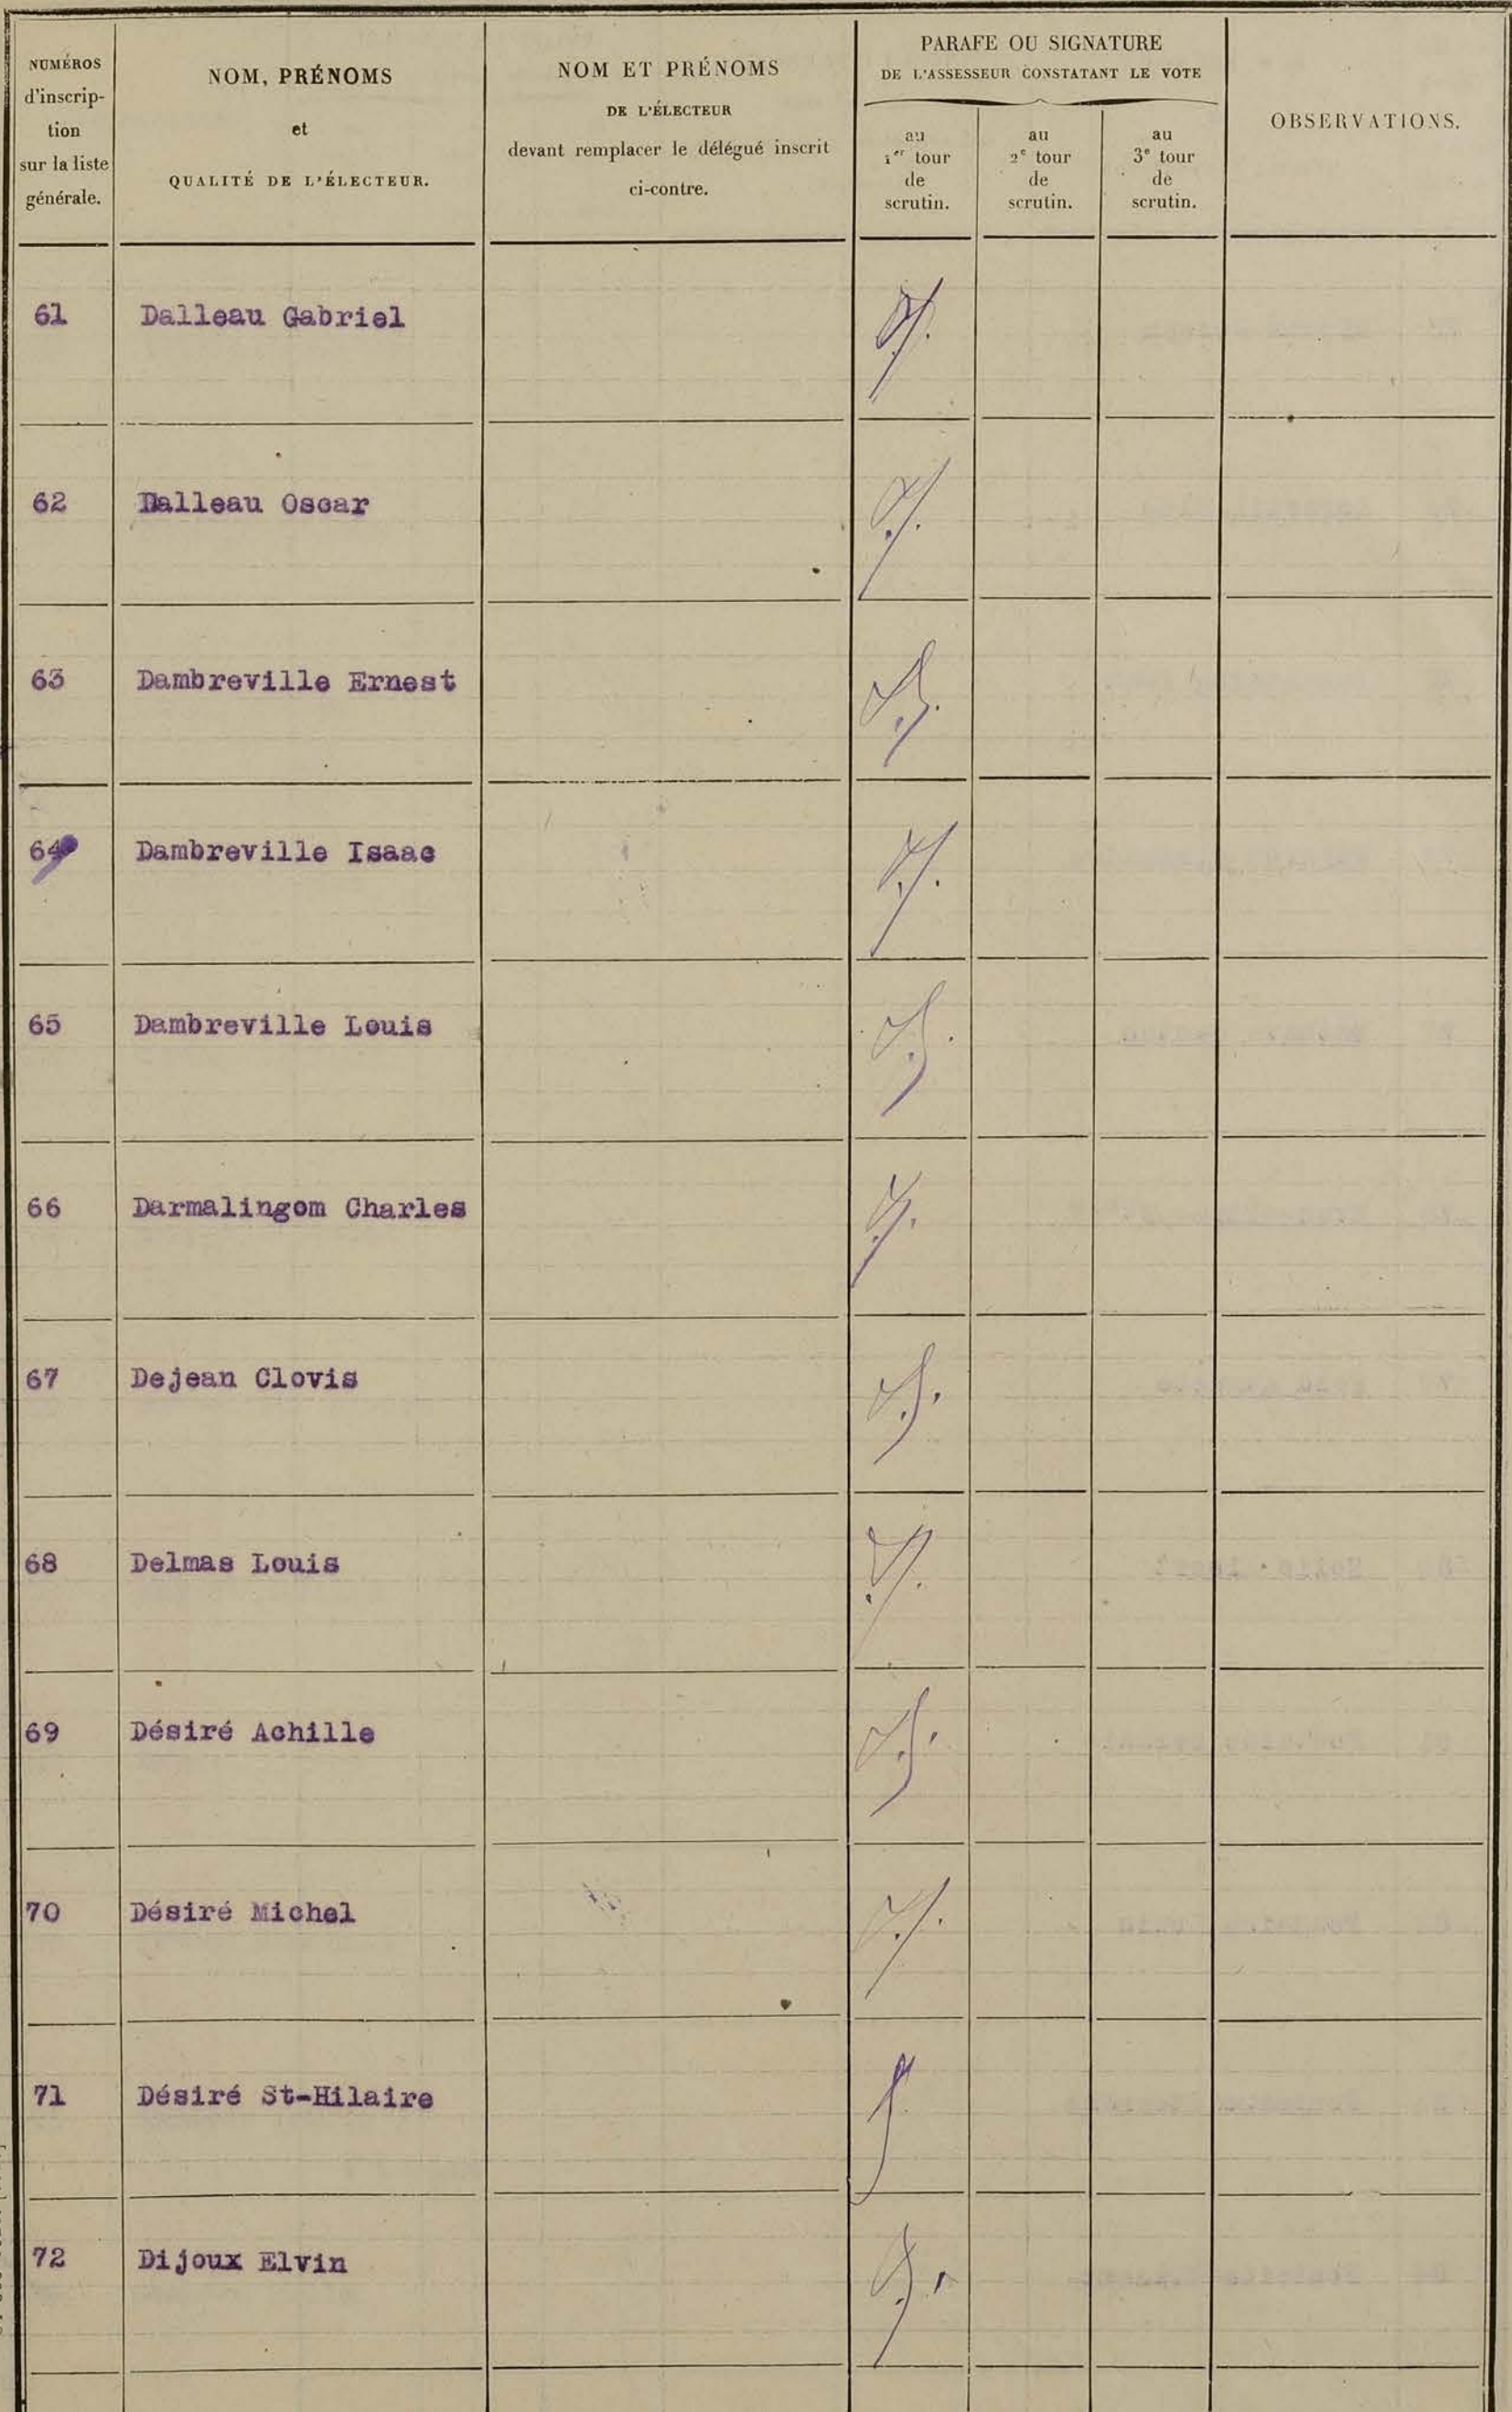 NUMÉROS
d'inscrip-
tion
sur la liste
générale.
NOM, PRÉNOMS
et
QUALITÉ DE L'ÉLECTEUR.
NOM ET PRÉNOMS
DE L'ÉLECTEUR
devant remplacer le délégué inscrit
ci-contre.
PARAFE OU SIGNATURE
DE L'ASSESSEUR CONSTATANT LE VOTE
au
1er tour
de
scrutin.
au
2e tour
de
scrutin.
au
3e tour
de
scrutin.
OBSERVATIONS.
61 Dalleau Gabriel
62 Dalleau Oscar
63 Dambreville Ernest
64 Dambreville Isaac
65 Dambreville Louis
66 Darmalingom Charles
67 Dejean Clovis
68 Delmas Louis
69 Désiré Achille
70 Désiré Michel
71 Désiré St-Hilaire
72 Dijoux Elvin